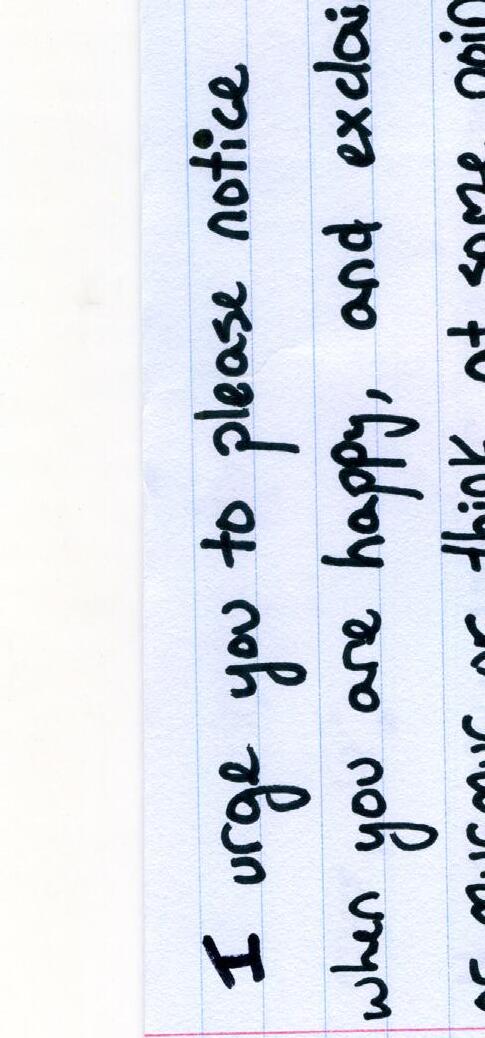 I urge you to please notice
when you are happy, and exclai
or murmur or think at some poin